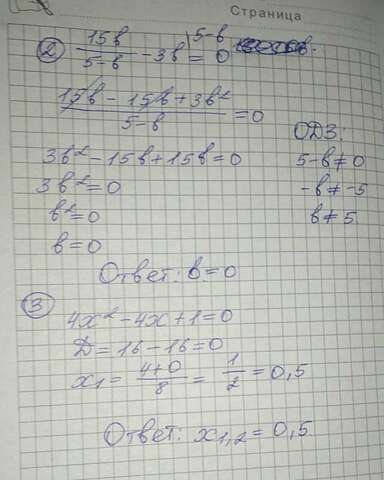 Страница
② 15в/5-в - 3в\5-в = 0
15в - 15в + 3в²/5-в = 0
ОДЗ:
3в² - 15в + 15в = 0
5-в ≠ 0
3в² = 0
-в ≠ -5
в² = 0
в ≠ 5
в = 0
Ответ: в = 0
③
4х² - 4х + 1 = 0
Д = 16 - 16 = 0
х₁ = 4+0/8 = 1/2 = 0,5
Ответ: х₁,₂ = 0,5